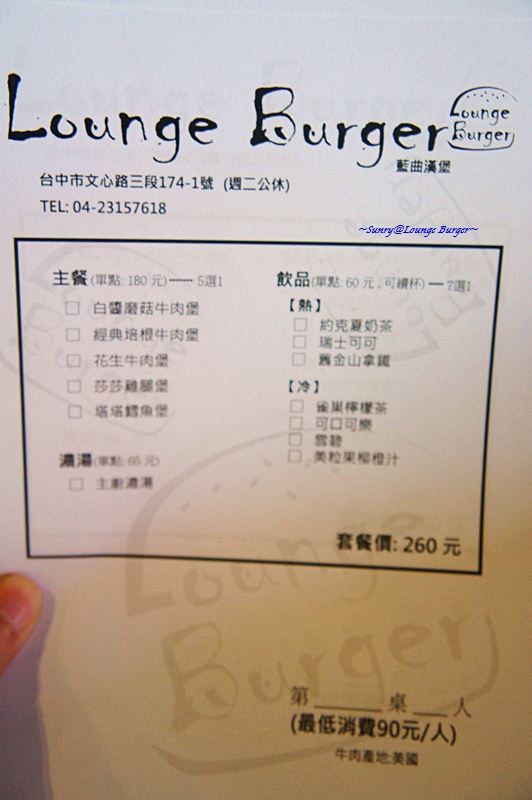 Lounge Burger
Lounge
Burger
藍曲漢堡
台中市文心路三段174-1號 (週二公休)
TEL: 04-23157618
~Sunry@Lounge Burger~
主餐(單點: 180 元)------ 5選1
白醬磨菇牛肉堡
經典培根牛肉堡
花生牛肉堡
莎莎雞腿堡
塔塔鱈魚堡
濃湯(單點: 65 元)
主廚濃湯
飲品(單點: 60 元 , 可續杯) — 7選1
【熱】
約克夏奶茶
瑞士可可
舊金山拿鐵
【冷】
雀巢檸檬茶
可口可樂
雪碧
美粒果柳橙汁
套餐價: 260 元
Lounge
Burger
第 ______ 桌 ___ 人
(最低消費90元/人)
牛肉產地:美國